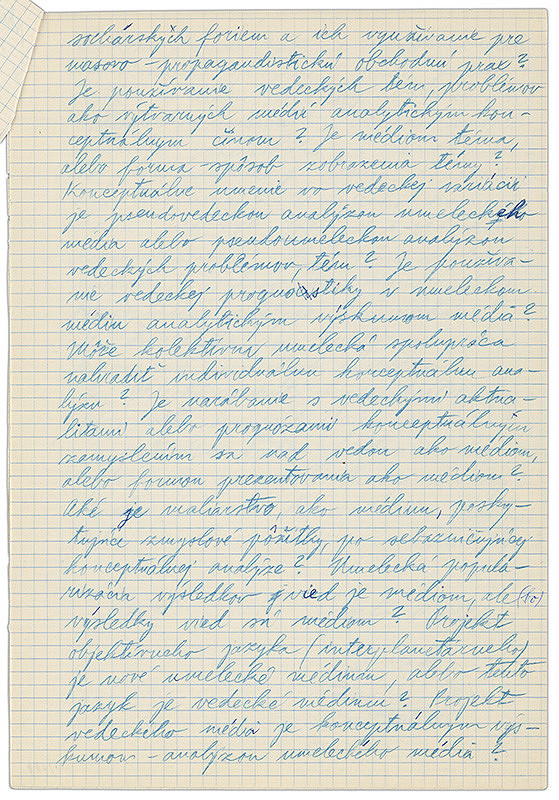 sochárskych foriem a ich využívanie pre
masovo-propagandistickú obchodnú prax?
Je používanie vedeckých tém, problémov
ako výtvarných médií analytickým kon-
ceptuálnym činom? Je médiom téma,
alebo forma-spôsob zobrazenia témy?
Konceptuálne umenie vo vedeckej variácii
je pseudovedeckou analýzou umeleckého
média alebo pseudoumeleckou analýzou
vedeckých problémov, tém? Je používa-
nie vedeckej prognostiky v umeleckom
médiu analytickým výskumom média?
Môže kolektívna umelecká spolupráca
nahradiť individuálnu konceptuálnu ana-
lýzu? Je narábanie s vedeckými aktua-
litami alebo prognózami konceptuálnym
zamyslením sa nad vedou ako médiom,
alebo formou prezentovania ako médiom?
Aké je maliarstvo, ako médium, posky-
tujúce zmyslové pôžitky, po sebazničujúcej
konceptuálnej analýze? Umelecká popula-
rizácia výsledkov vied je médiom, ale (to)
výsledky vied sú médiom? Projekt
objektívneho jazyka (interplanetárneho)
je nové umelecké médium, alebo tento
jazyk je vedecké médium? Projekt
vedeckého média je konceptuálnym výs-
kumom-analýzou umeleckého média?